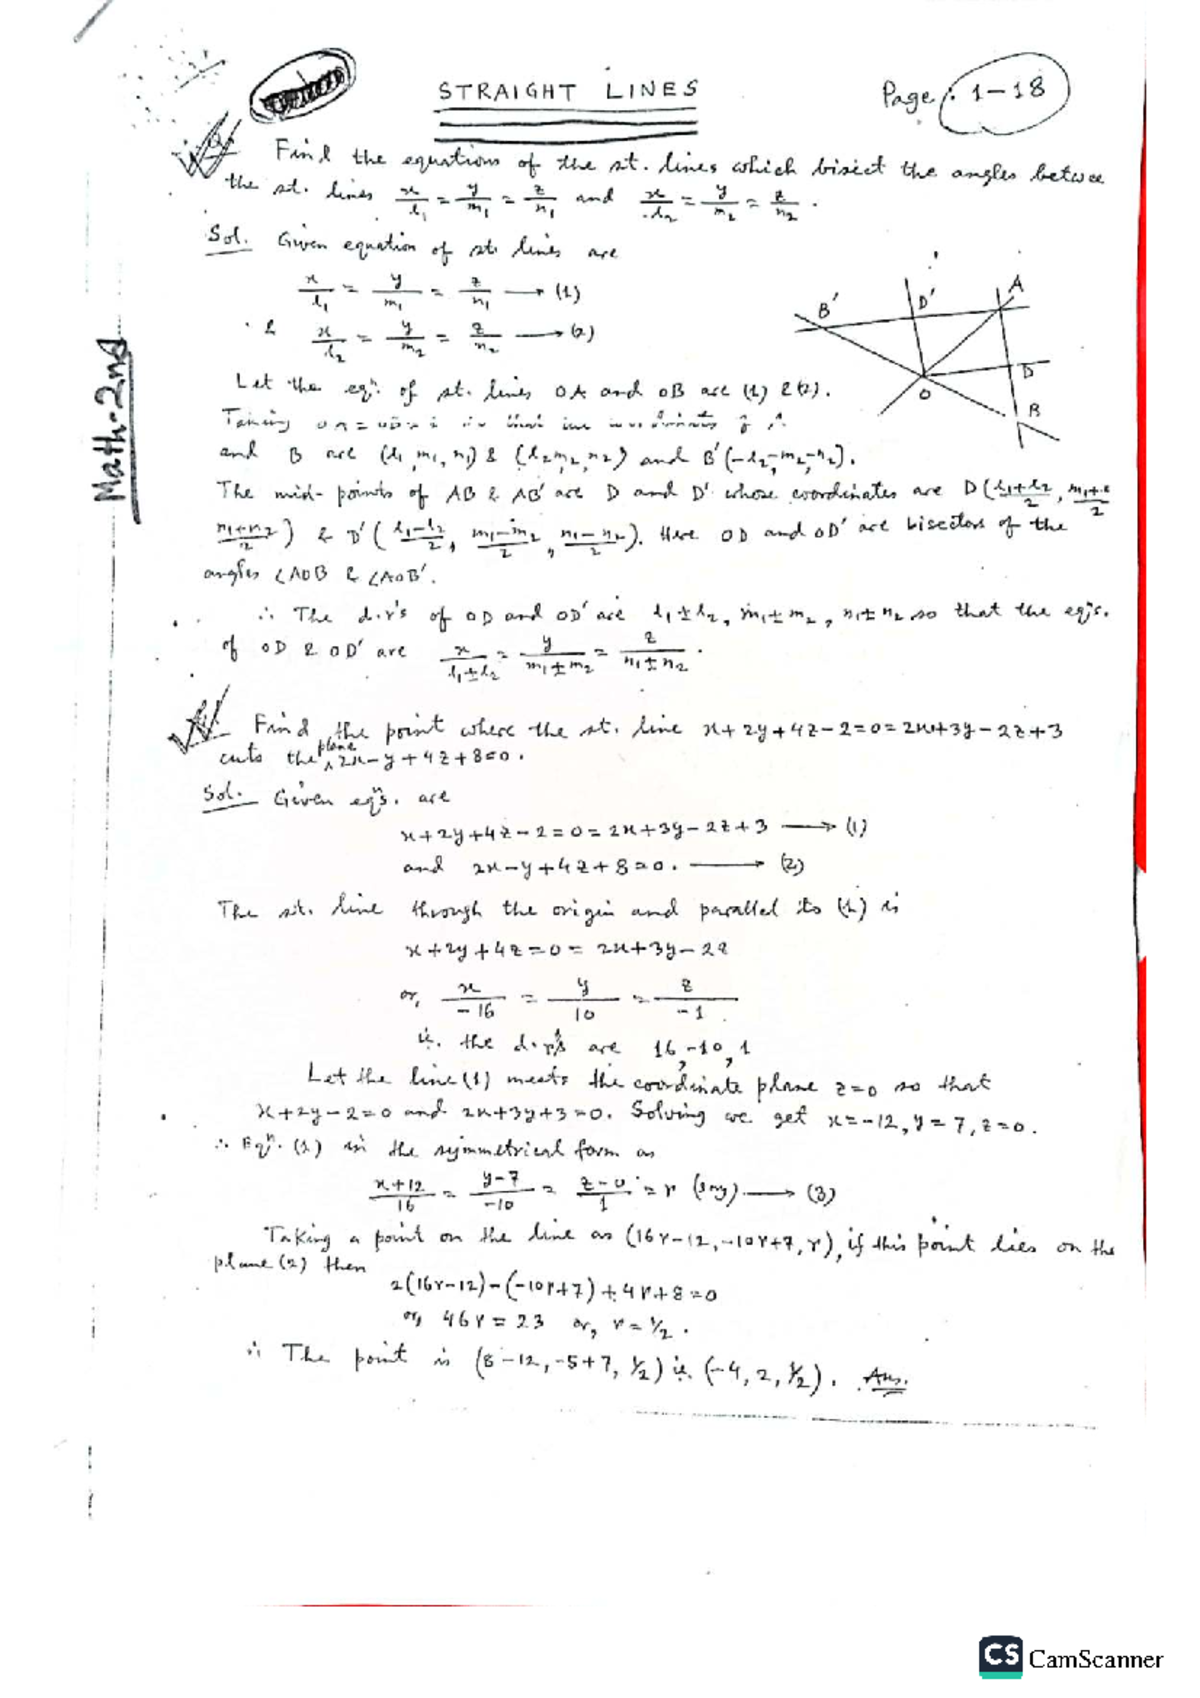 STRAIGHT LINES
Page: 1-18
Find the equations of the st. lines which bisect the angles betwee
the st. lines x/l₁ = y/m₁ = z/n₁ and x/l₂ = y/m₂ = z/n₂.
Sol. Given equation of st. lines are
x/l₁ = y/m₁ = z/n₁ → (1)
& x/l₂ = y/m₂ = z/n₂ → (2)
B' D' A
O D B
Let the eqⁿ. of st. lines OA and OB are (1) & (2).
Taking
and B are (l₁, m₁, n₁) & (l₂, m₂, n₂) and B'(-l₂, -m₂, -n₂).
The mid-points of AB & AB' are D and D' whose coordinates are D(l₁+l₂/2, m₁+.2/2
n₁+n₂/2) & D'(l₁-l₂/2, m₁-m₂/2, n₁-n₂/2). Here OD and OD' are bisectors of the
angles ∠AOB & ∠AOB'.
∴ The d.r's of OD and OD' are l₁±l₂, m₁±m₂, n₁±n₂ so that the eqⁿs.
of OD & OD' are x/l₁±l₂ = y/m₁±m₂ = z/n₁±n₂.
Math-2nd
Find the point where the st. line x+2y+4z-2=0=2x+3y-2z+3
cuts the plane 2x-y+4z+8=0.
Sol. Given eqⁿs. are
x+2y+4z-2=0=2x+3y-2z+3 → (1)
and 2x-y+4z+8=0. → (2)
The st. line through the origin and parallel to (1) is
x+2y+4z=0=2x+3y-2z
or, x/-16 = y/10 = z/-1
i.e. the d.r's are 16, -10, 1
Let the line (1) meets the coordinate plane z=0 so that
x+2y-2=0 and 2x+3y+3=0. Solving we get x=-12, y=7, z=0.
∴ Eqⁿ. (1) in the symmetrical form as
x+12/16 = y-7/-10 = z-0/1 = r (say) → (3)
Taking a point on the line as (16r-12, -10r+7, r), if this point lies on the
plane (2) then
2(16r-12)-(-10r+7)+4r+8=0
or, 46r=23 or, r=1/2.
∴ The point is (8-12, -5+7, 1/2) i.e. (-4, 2, 1/2). Ans.
CS CamScanner